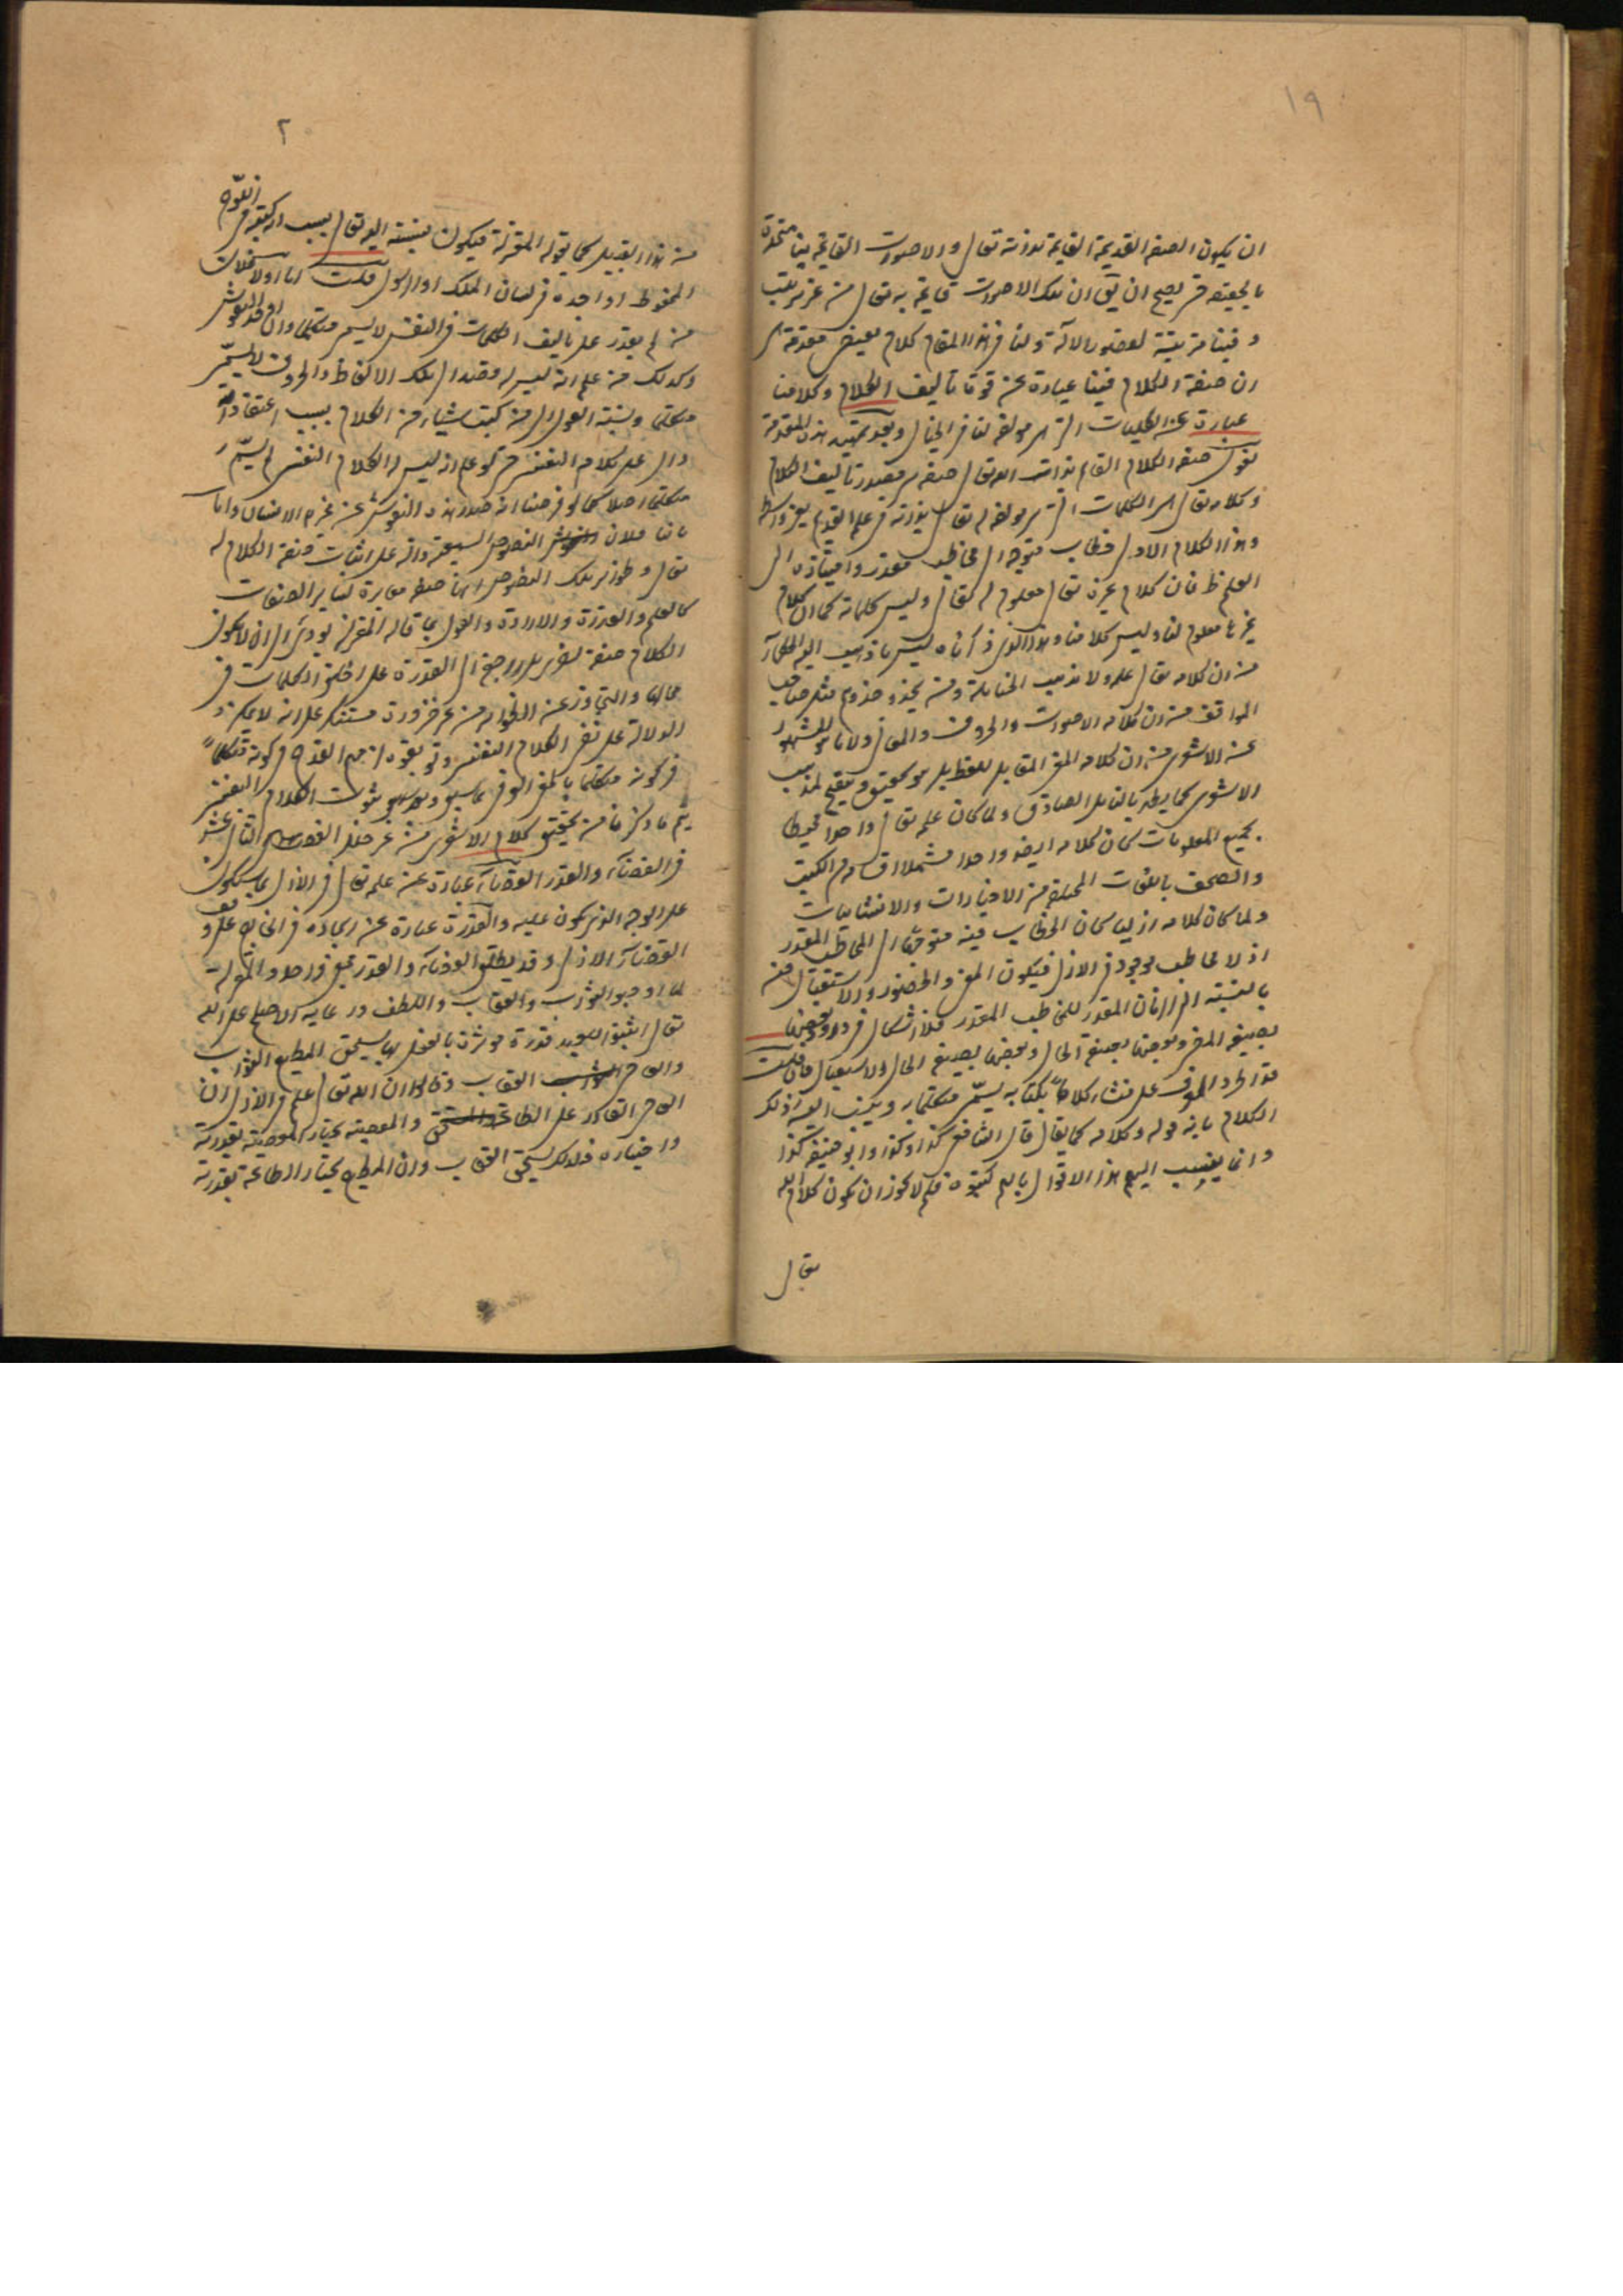 ١٩
ان يكون الصفة القديمة القايمة بذاته تعالى والاصوات القايمة بنا متحدة
بالحقيقة حتى يصح ان يق ان تلك الاصوات قايمة به تعالى من غير ترتب
وفينا مرتبة لقصور الآلة ولنا فى هذا المقام كلام يقتضى مقدمة هى
ان صفة الكلام فينا عبارة عن قوة تأليف الكلام وكلامنا
عبارة عن الكلمات التى هى مؤلفة لنا فى الخيال وبعد تمهيد هذه المقدمة
نقول صفة الكلام القايم بذات الله تعالى صفة هى مصدر تأليف الكلام
وكلامه تعالى هى الكلمات التى هى مؤلفة له تعالى بذاته فى علمه القديم بغير واسطة
وهذا الكلام الازلى خطاب متوجه الى مخاطب مقدر وامتيازه الى
العلم ظ فان كلام غيره تعالى معلوم له تعالى وليس كلامه كما ان كلام
غيرنا معلوم لنا وليس كلامنا وهذا الذى ذكرناه ليس ما ذهب اليه الحكماء
من ان كلامه تعالى علمه ولا مذهب الحنابلة ومن يحذو حذوهم مثل صاحب
المواقف من ان كلامه الاصوات والحروف والمعانى ولا ما هو المشهور
عن الاشعرى من ان كلامه المعنى المقابل للفظ بل هو تحقيق وتنقيح لمذهب
الاشعرى كما يظهر بالتأمل الصادق ولما كان علمه تعالى واحدا محيطا
بجميع المعلومات كان كلامه ايضا واحدا مشتملا اقسام الكتب
والصحف باللغات المختلفة من الاخبارات والانشائيات
ولما كان كلامه ازليا كان الخطاب فيه متوجها الى المخاطب المقدر
اذ لا مخاطب موجود فى الازل فيكون المضى والحضور والاستقبال فيه
بالنسبة الى الزمان المقدر للمخاطب المقدر فلا اشكال فى ورود بعضها
بصيغة المضى وبعضها بصيغة الحال وبعضها بصيغة الحال والاستقبال فان قلت
قد اطرد العرف على من انشاء كلاما بكتابه يسمى متكلما به وينسب اليه ذلك
الكلام بانه قوله وكلامه كما يقال قال الشافعى كذا وكذا وابو حنيفة كذا
وانما ينسب اليهم هذا الاقوال بانهم كتبوه فلم لا يجوز ان يكون كلام الله
تعالى
٢٠
من هذا القبيل كما يقوله المعتزلة فيكون نسبته اليه تعالى بسبب انه كتبه فى اللوح
المحفوظ او اوجده فى لسان الملك او الرسول قلت اما اولا فلان
من لم يقدر على تأليف الكلمات فى النفس لا يسمى متكلما وان اوجد النقوش
وكذلك من علم انه ليس له قصد الى تلك الالفاظ والحروف لا يسمى
متكلما ونسبة القول الى من كتب شيئا من الكلام بسبب اعتقاد انه
دال على كلامه النفسى حتى لو علم انه ليس له الكلام النفسى لم يسم
متكلما اصلا كما لو فرضنا انه صدر هذه النقوش عن غير الانسان واما
ثانيا فلان النصوص السمعية دالة على اثبات صفة الكلام له
تعالى وظواهر تلك النصوص انها صفة مغايرة لساير الصفات
كالعلم والقدرة والارادة والقول بما قاله المعتزلة يؤدى الى ان لا يكون
الكلام صفة اخرى بل راجع الى القدرة على خلق الكلمات فى
محالها والتجاوز عن الظواهر من غير ضرورة مستنكر على انه لا يمكن
الدلالة على نفى الكلام النفسى
فى كونه متكلما بالمعنى العرفى
يتم ما ذكرنا من تحقيق كلام الاشعرى من غير خلل الفصل الثانى عشر
فى القضاء والقدر القضاء عبارة عن علمه تعالى فى الازل بما سيكون
على الوجه الذى يكون عليه والقدرة عبارة عن ايجاده فى الخارج على وفق
القضاء الازلى وقد يطلق القضاء والقدر بمعنى واحد والمعتزلة
لما اوجبوا الثواب والعقاب واللطف ورعاية الاصلح على الله
تعالى اثبتوا للعبد قدرة مؤثرة بالفعل بها يستحق المطيع الثواب
والعاصى العقاب وقالوا ان الله تعالى علم فى الازل ان
العاصى القادر على الطاعة والمعصية يختار المعصية بقدرته
واختياره فلذلك يستحق العقاب وان المطيع يختار الطاعة بقدرته